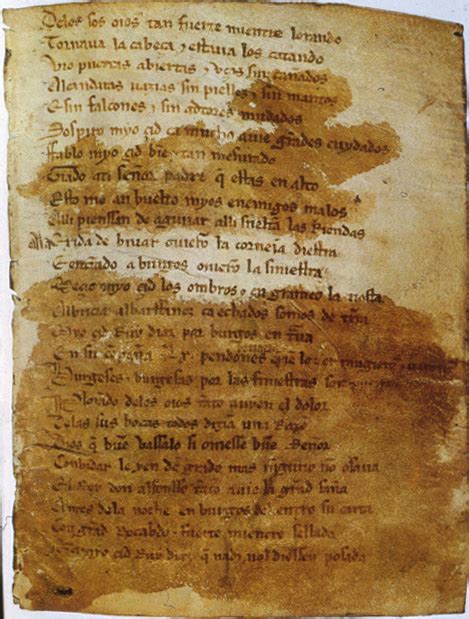 Delos sos oios tan fuerte mientre lorando
Tornava la cabeça & estava los catando
Vio puertas abiertas & uços sin cañados
Alcandaras uazias sin pielles & sin mantos
E sin falcones & sin adtores mudados
Sospiro myo çid ca mucho auie grãdes cuydados
Fablo myo çid biẽ & tan mesurado
Grado ati señor padre q̃ estas en alto
Esto me an buelto myos enemigos malos
Alli pienssan de aguiiar alli sueltã las Riendas
Ala Exida de biuar ouierõ la corneia diestra
Entrando a burgos ouierõ la siniestra
Meçio myo çid los ombros & engrameo la tiesta
Albricia albarffanez ca echados somos de tr̃ra
Myo çid Ruy diaz por burgos en traua
En su conpaña Lx. pendones
Burgeses & burgesas por las finiestras son
Plorando delos oios tãto auyen el dolor
Delas sus bocas todos dizia una Razo
Dios q̃ buẽ vassalo si ouiesse buẽ Senor
Conbidar le yen de grado mas ninguno no osaua
El Rey don alfonsso tãto auie la grãd saña
Antes dela noche en burgos del entro su carta
Con grãd Recabdo & fuerte mientre sellada
myo çid Ruy diaz q̃ nadi nol diessen posada